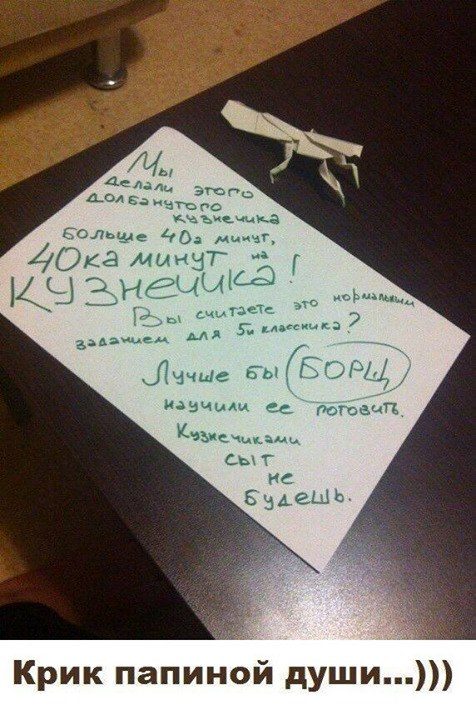 Мы
делали этого
долбанутого
кузнечика
больше 40а минут,
40ка минут на
КУЗНЕЧИКА!
Вы считаете это нормальным
заданием для 5и классника?
Лучше бы БОРЩ
научили ее готовить.
Кузнечиками
сыт
не
будешь.
Крик папиной души...)))